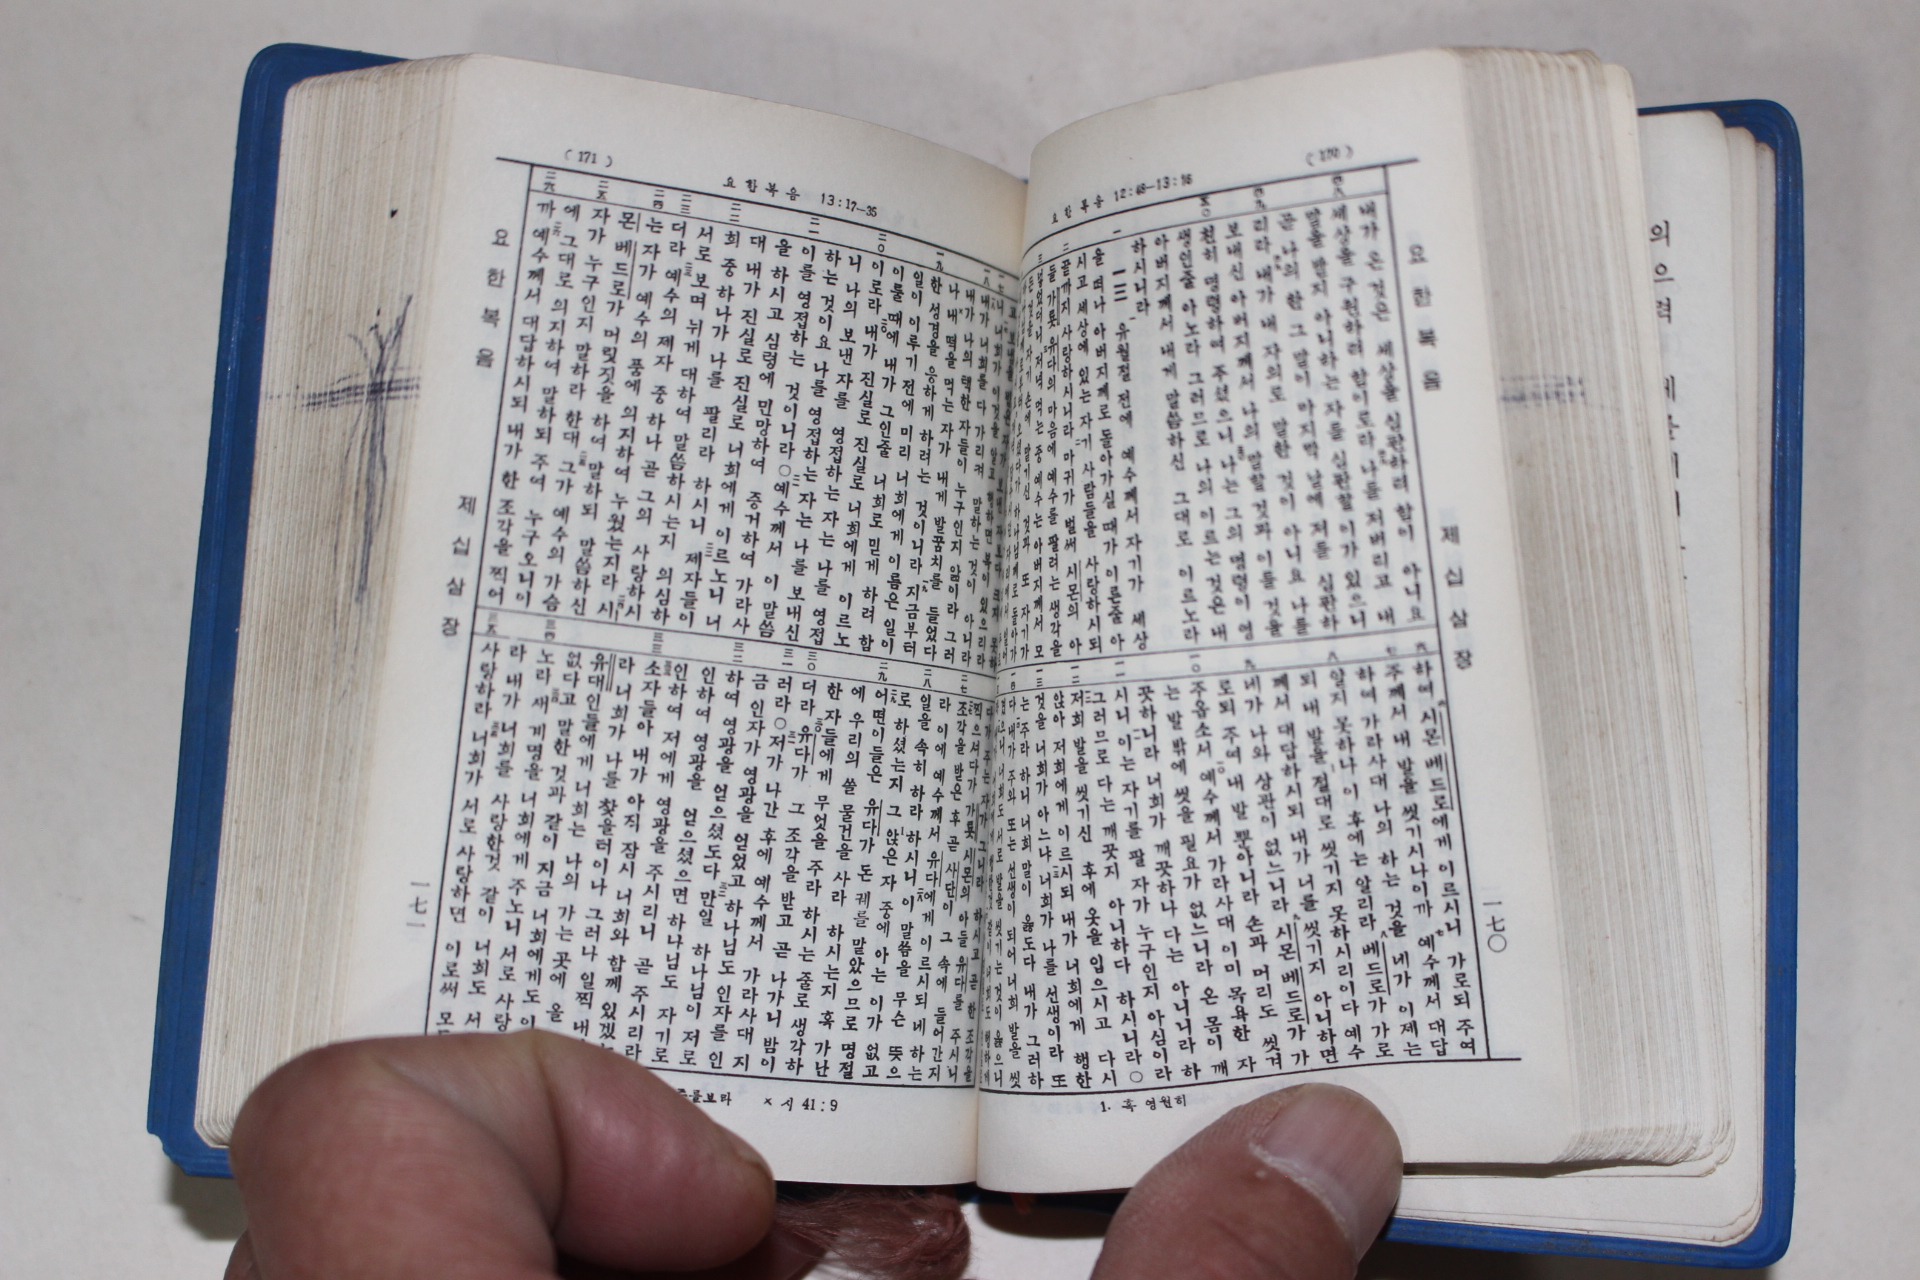 (170)
요한복음 12:48—13:16
요한복음
제십삼장
一七〇
내가 온 것은 세상을 심판하려 함이 아니요
세상을 구원하려 함이로라 나를 저버리고 내
말을 받지 아니하는 자를 심판할 이가 있으니
곧 나의 한 그 말이 마지막 날에 저를 심판하
리라 내가 내 자의로 말한 것이 아니요 나를
보내신 아버지께서 나의 말할 것과 이를 것을
친히 명령하여 주셨으니 나는 그의 명령이 영
생인줄 아노라 그러므로 나의 이르는 것은 내
아버지께서 내게 말씀하신 그대로 이르노라
하시니라
一三 유월절 전에 예수께서 자기가 세상
을 떠나 아버지께로 돌아가실 때가 이른줄 아
시고 세상에 있는 자기 사람들을 사랑하시되
끝까지 사랑하시니라 마귀가 벌써 시몬의 아
들 가룟 유다의 마음에 예수를 팔려는 생각을
넣었더니 저녁 먹는 중 예수는 아버지께서 모
든 것을 자기 손에 맡기신 것과 또 자기가
하여 시몬 베드로에게 이르시니 가로되 주여
주께서 내 발을 씻기시나이까 예수께서 대답
하여 가라사대 나의 하는 것을 네가 이제는
알지 못하나 이 후에는 알리라 베드로가 가로
되 내 발을 절대로 씻기지 못하시리이다 예수
께서 대답하시되 내가 너를 씻기지 아니하면
네가 나와 상관이 없느니라 시몬 베드로가 가
로되 주여 내 발 뿐아니라 손과 머리도 씻겨
주옵소서 예수께서 가라사대 이미 목욕한 자
는 발 밖에 씻을 필요가 없느니라 온 몸이 깨
끗하니라 너희가 깨끗하나 다는 아니니라 하
시니 이는 자기를 팔 자가 누구인지 아심이라
그러므로 다는 깨끗지 아니하다 하시니라○
저희 발을 씻기신 후에 옷을 입으시고 다시
앉아 저희에게 이르시되 내가 너희에게 행한
것을 너희가 아느냐 너희가 나를 선생이라 또
는 주라 하니 너희 말이 옳도다 내가 그러하
다 내가 주와 또는 선생이 되어 너희 발을 씻
겼으니 너희도 서로 발을 씻기는 것이 옳으니
1. 혹 영원히
(171)
요한복음 13:17—35
내가 너희를 다 가리켜 말하는 것이 아니라
내가 나의 택한 자들이 누구인지 앎이라 그러
나 내 떡을 먹는 자가 내게 발꿈치를 들었다
한 성경을 응하게 하려는 것이니라 지금부터
일이 이루기 전에 미리 너희에게 이름은 일이
이룰 때에 내가 그인줄 너희로 믿게 하려 함
이로라 내가 진실로 진실로 너희에게 이르노
니 나의 보낸 자를 영접하는 자는 나를 영접
하는 것이요 나를 영접하는 자는 나를 보내신
이를 영접하는 것이니라○예수께서 이 말씀
을 하시고 심령에 민망하여 증거하여 가라사
대 내가 진실로 진실로 너희에게 이르노니 너
희 중 하나가 나를 팔리라 하시니 제자들이
서로 보며 뉘게 대하여 말씀하시는지 의심하
더라 예수의 제자 중 하나 곧 그의 사랑하시
는 자가 예수의 품에 의지하여 누웠는지라 시
몬 베드로가 머릿짓을 하여 말하되 말씀하신
자가 누구인지 말하라 한대 그가 예수의 가슴
에 그대로 의지하여 말하되 주여 누구오니이
까 예수께서 대답하시되 내가 한 조각을 찍어
다가 주는 자가 그니라 하시고 곧 한 조각을
찍으셔다가 가룟 시몬의 아들 유다를 주시니
조각을 받은 후 곧 사단이 그 속에 들어간지
라 이에 예수께서 유다에게 이르시되 네 하는
일을 속히 하라 하시니 이 말씀을 무슨 뜻으
로 하셨는지 그 앉은 자 중에 아는 이가 없고
어떤이들은 유다가 돈 궤를 맡았으므로 명절
에 우리의 쓸 물건을 사라 하시는지 혹 가난
한 자들에게 무엇을 주라 하시는 줄로 생각하
더라 유다가 그 조각을 받고 곧 나가니 밤이
러라○저가 나간 후에 예수께서 가라사대 지
금 인자가 영광을 얻었고 하나님도 인자를 인
하여 영광을 얻으셨도다 만일 하나님이 저로
인하여 영광을 얻으셨으면 하나님도 자기로
인하여 저에게 영광을 주시리니 곧 주시리라
소자들아 내가 아직 잠시 너희와 함께 있겠
라 너희가 나를 찾을터이나 그러나 일찍 내
유대인들에게 너희는 나의 가는 곳에 올
없다고 말한것과 같이 지금 너희에게도 이
노라 새 계명을 너희에게 주노니 서로 사랑
라 내가 너희를 사랑한것 같이 너희도 서
사랑하라 너희가 서로 사랑하면 이로써 모
요한복음
제십삼장
一七一
를보라 × 시 41:9
의 으 력